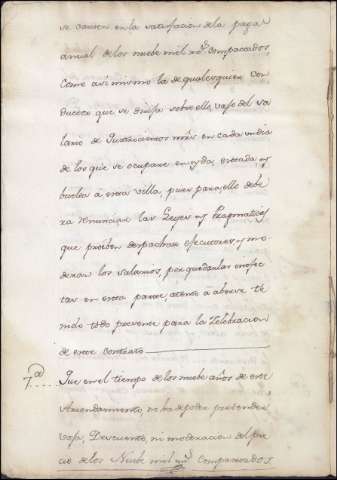 se causen en la satisfacion de la paga
anual de los nuebe mil rs. compacados,
Como asi mismo la de qualesquiera con
ductor que se dirija sobre ello, vajo del sa
lario de Quatrocientos mrs en cada un dia
de los que se ocupare en yda, estada, y
buelta à esta villa, pues para ello debe
ra renunciar las Leyes y Pragmaticas
que proiben despachar executores, y mo
deran los salarios, por quedarlas
en esta parte, atento à aberse te
nido todo presente para la Zelebracion
de este contrato
7ª Que en el tiempo de los nuebe años de este
Arrendamiento, no ha de poder pretender
vaja, Descuento, ni moderacion del pre
cio de los Nuebe mil rs. Compacados,